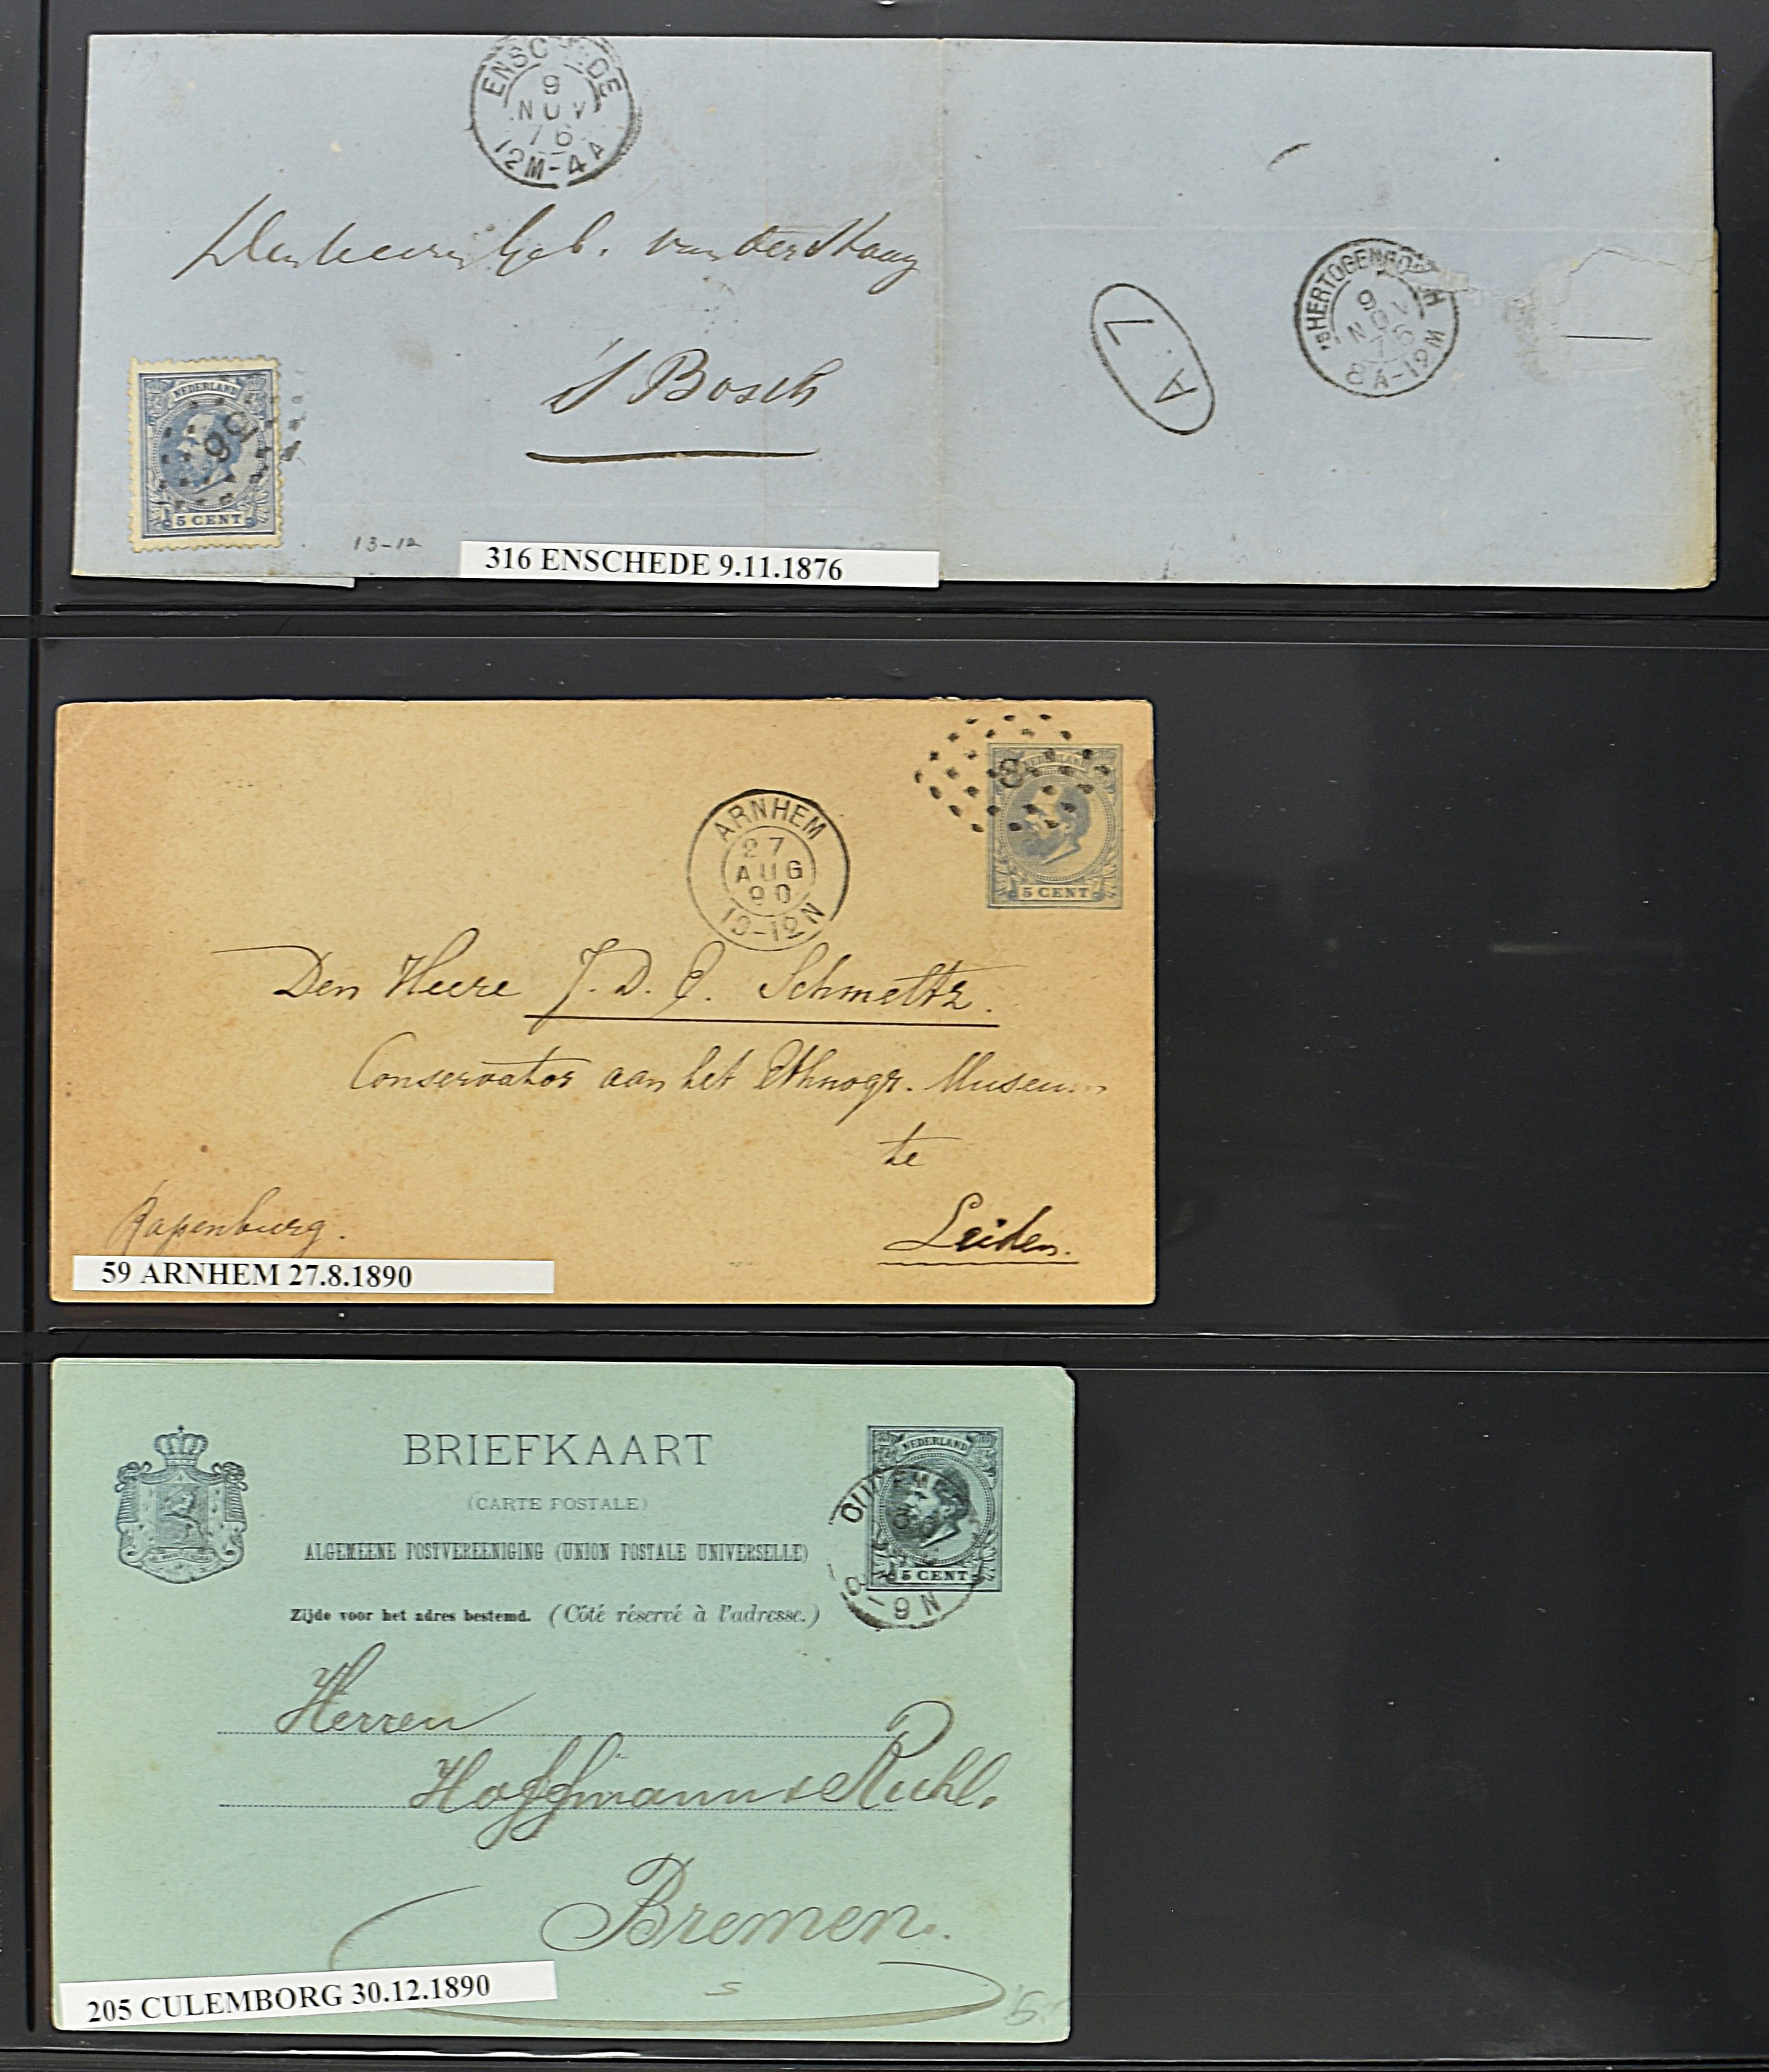 ENSCHEDE
9
NOV
76
12M-4A
's Bosch
NEDERLAND
5 CENT
13-12
316 ENSCHEDE 9.11.1876
A. 7
'sHERTOGENBOSCH
9
NOV
76
8A-12M
ARNHEM
27
AUG
90
10-12N
8
NEDERLAND
5 CENT
Den Heere J. D. E. Schmeltz.
Conservator aan het Ethnogr. Museum
te
Leiden.
Rapenburg.
59 ARNHEM 27.8.1890
BRIEFKAART
(CARTE POSTALE)
ALGEMEENE POSTVEREENIGING (UNION POSTALE UNIVERSELLE)
Zijde voor het adres bestemd. (Côté réservé à l'adresse.)
NEDERLAND
5 CENT
Herren
Hoffmann & Ruhl.
Bremen.
205 CULEMBORG 30.12.1890
5